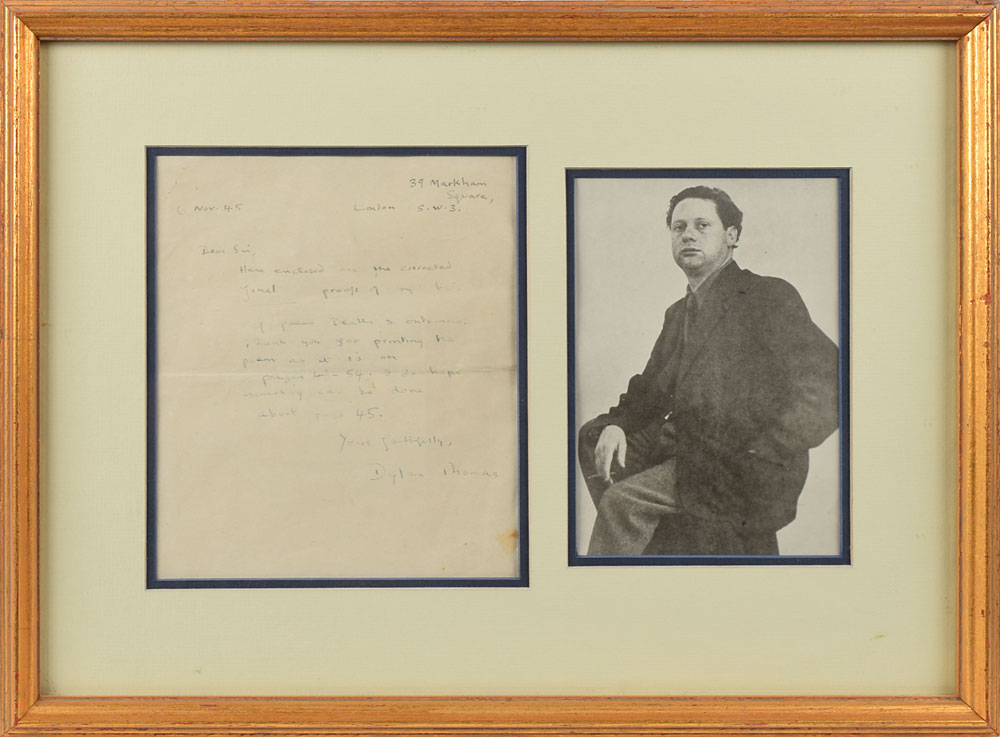 39 Markham
Square,
6 Nov. 45 London S.W.3.
Dear Sir,
Here enclosed are the corrected
final proofs of my
of poems Deaths & entrances.
Thank you for printing the
poem as it is on
pages 54. I do hope
can be done
about page 45.
Yours faithfully,
Dylan Thomas.